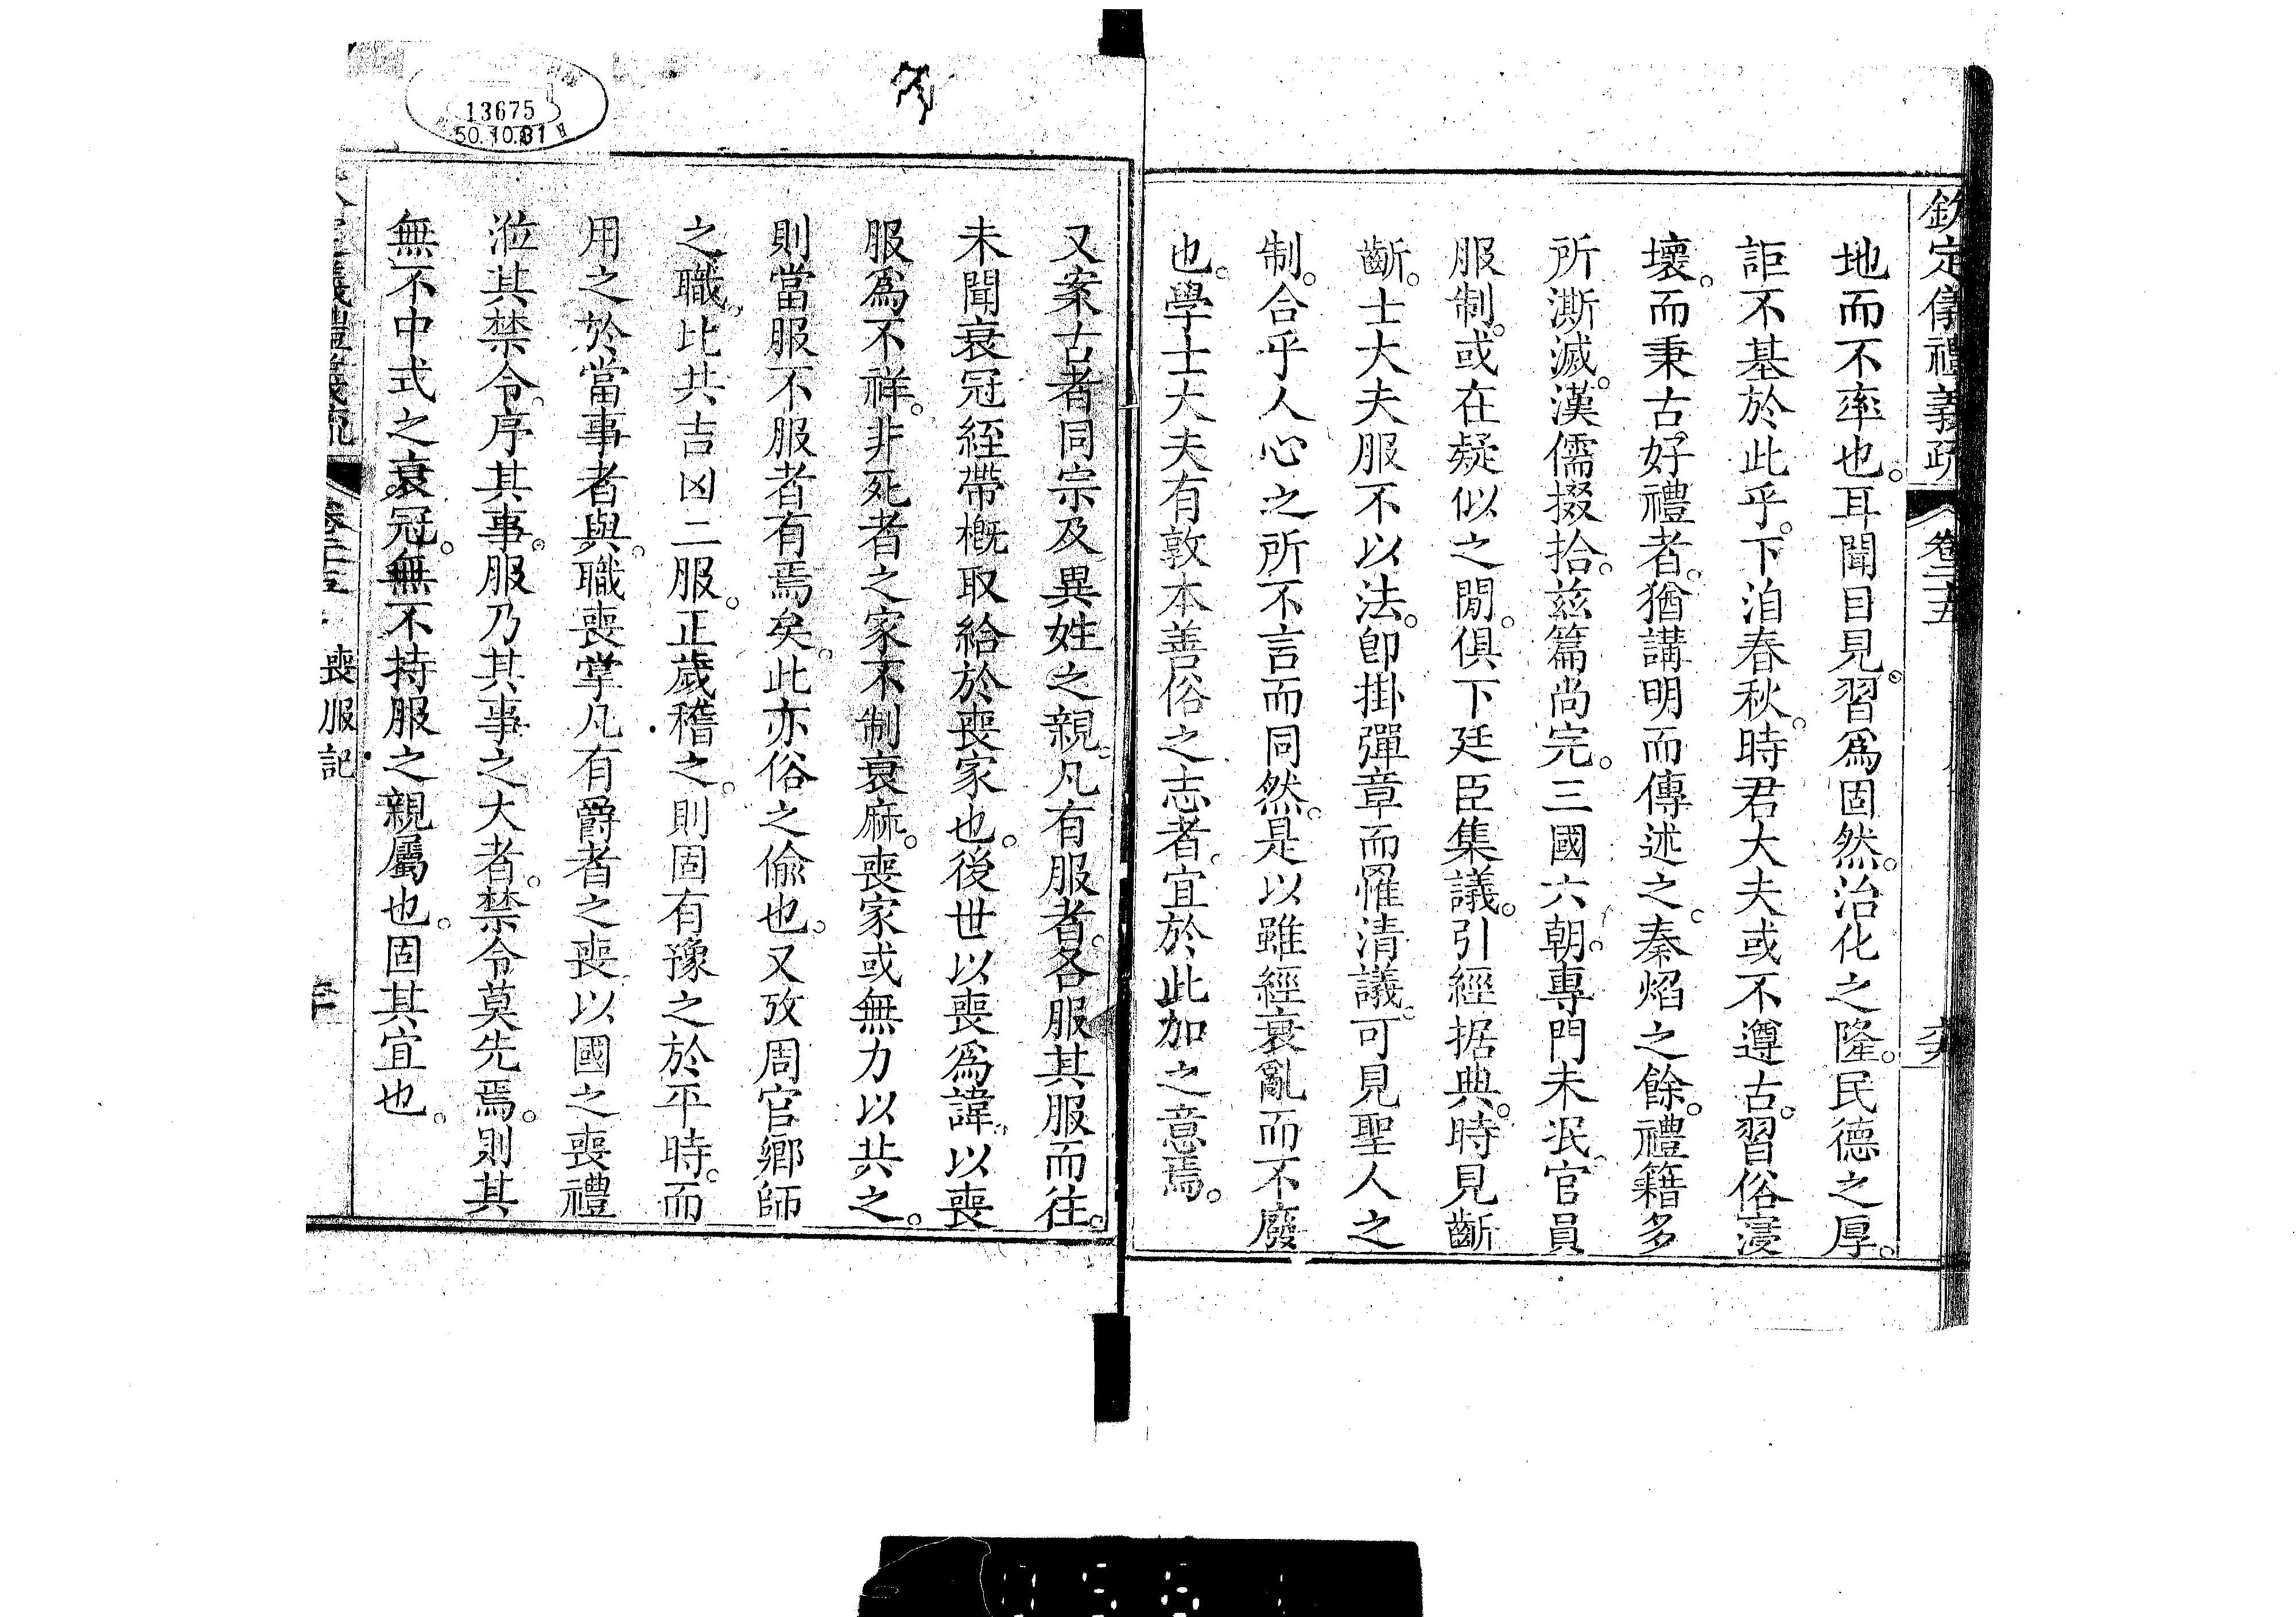 欽定儀禮義疏 卷二十五
地而不率也。耳聞目見。習爲固然。治化之隆。民德之厚。
詎不基於此乎。下洎春秋。時君大夫或不遵古。習俗寖
壞。而秉古好禮者。猶講明而傳述之。秦焰之餘。禮籍多
所澌滅。漢儒掇拾。兹篇尚完。三國六朝。專門未泯。官員
服制。或在疑似之閒。俱下廷臣集議。引經据典。時見齗
齗。士大夫服不以法。卽掛彈章而罹清議。可見聖人之
制。合乎人心之所不言而同然。是以雖經衰亂而不廢
也。學士大夫有敦本善俗之志者。宜於此加之意焉。
又案古者同宗及異姓之親。凡有服者。各服其服而往。
未聞衰冠絰帶槪取給於喪家也。後世以喪爲諱。以喪
服爲不祥。非死者之家不制衰麻。喪家或無力以共之。
則當服不服者有焉矣。此亦俗之偷也。又攷周官鄉師
之職。比共吉凶二服。正歲稽之。則固有豫之於平時。而
用之於當事者與。職喪掌凡有爵者之喪以國之喪禮
涖其禁令。序其事。服乃其事之大者。禁令莫先焉。則其
無不中式之衰冠。無不持服之親屬也。固其宜也。
喪服記
13675
50.10.31